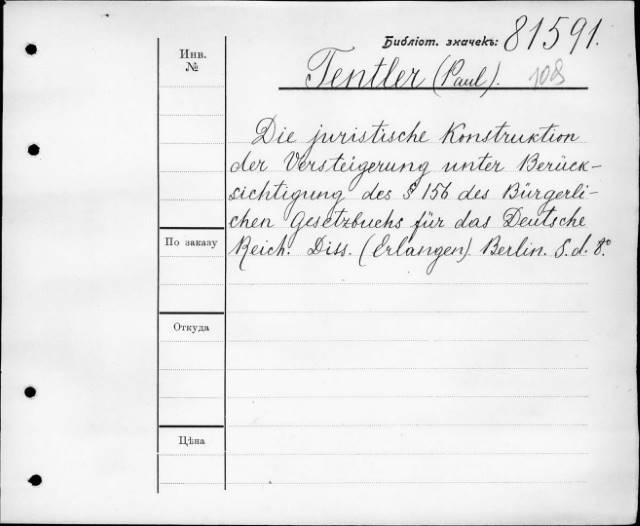 Библіот. значекъ: 81591.
Инв.
№
Tentler (Paul). 108
Die juristische Konstruktion
der Versteigerung unter Berück-
sichtigung des § 156 des Bürgerli-
chen Gesetzbuchs für das Deutsche
Reich. Diss. (Erlangen). Berlin. S. d. 8.º
По заказу
Откуда
Цѣна